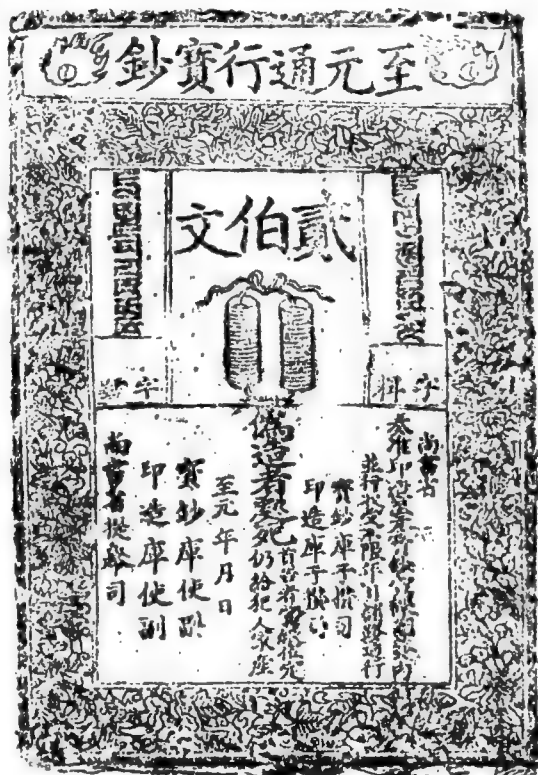 至元通行寶鈔
貳伯文
字料
字號
尚書省
奏准印造至元寶鈔宣課差役內
並行收受不限年月諸路通行
寶鈔庫子攢司
印造庫子攢司
偽造者處死
首告者賞
仍給犯人家產
至元 年 月 日
寶鈔庫使副
印造庫使副
尚書省提舉司